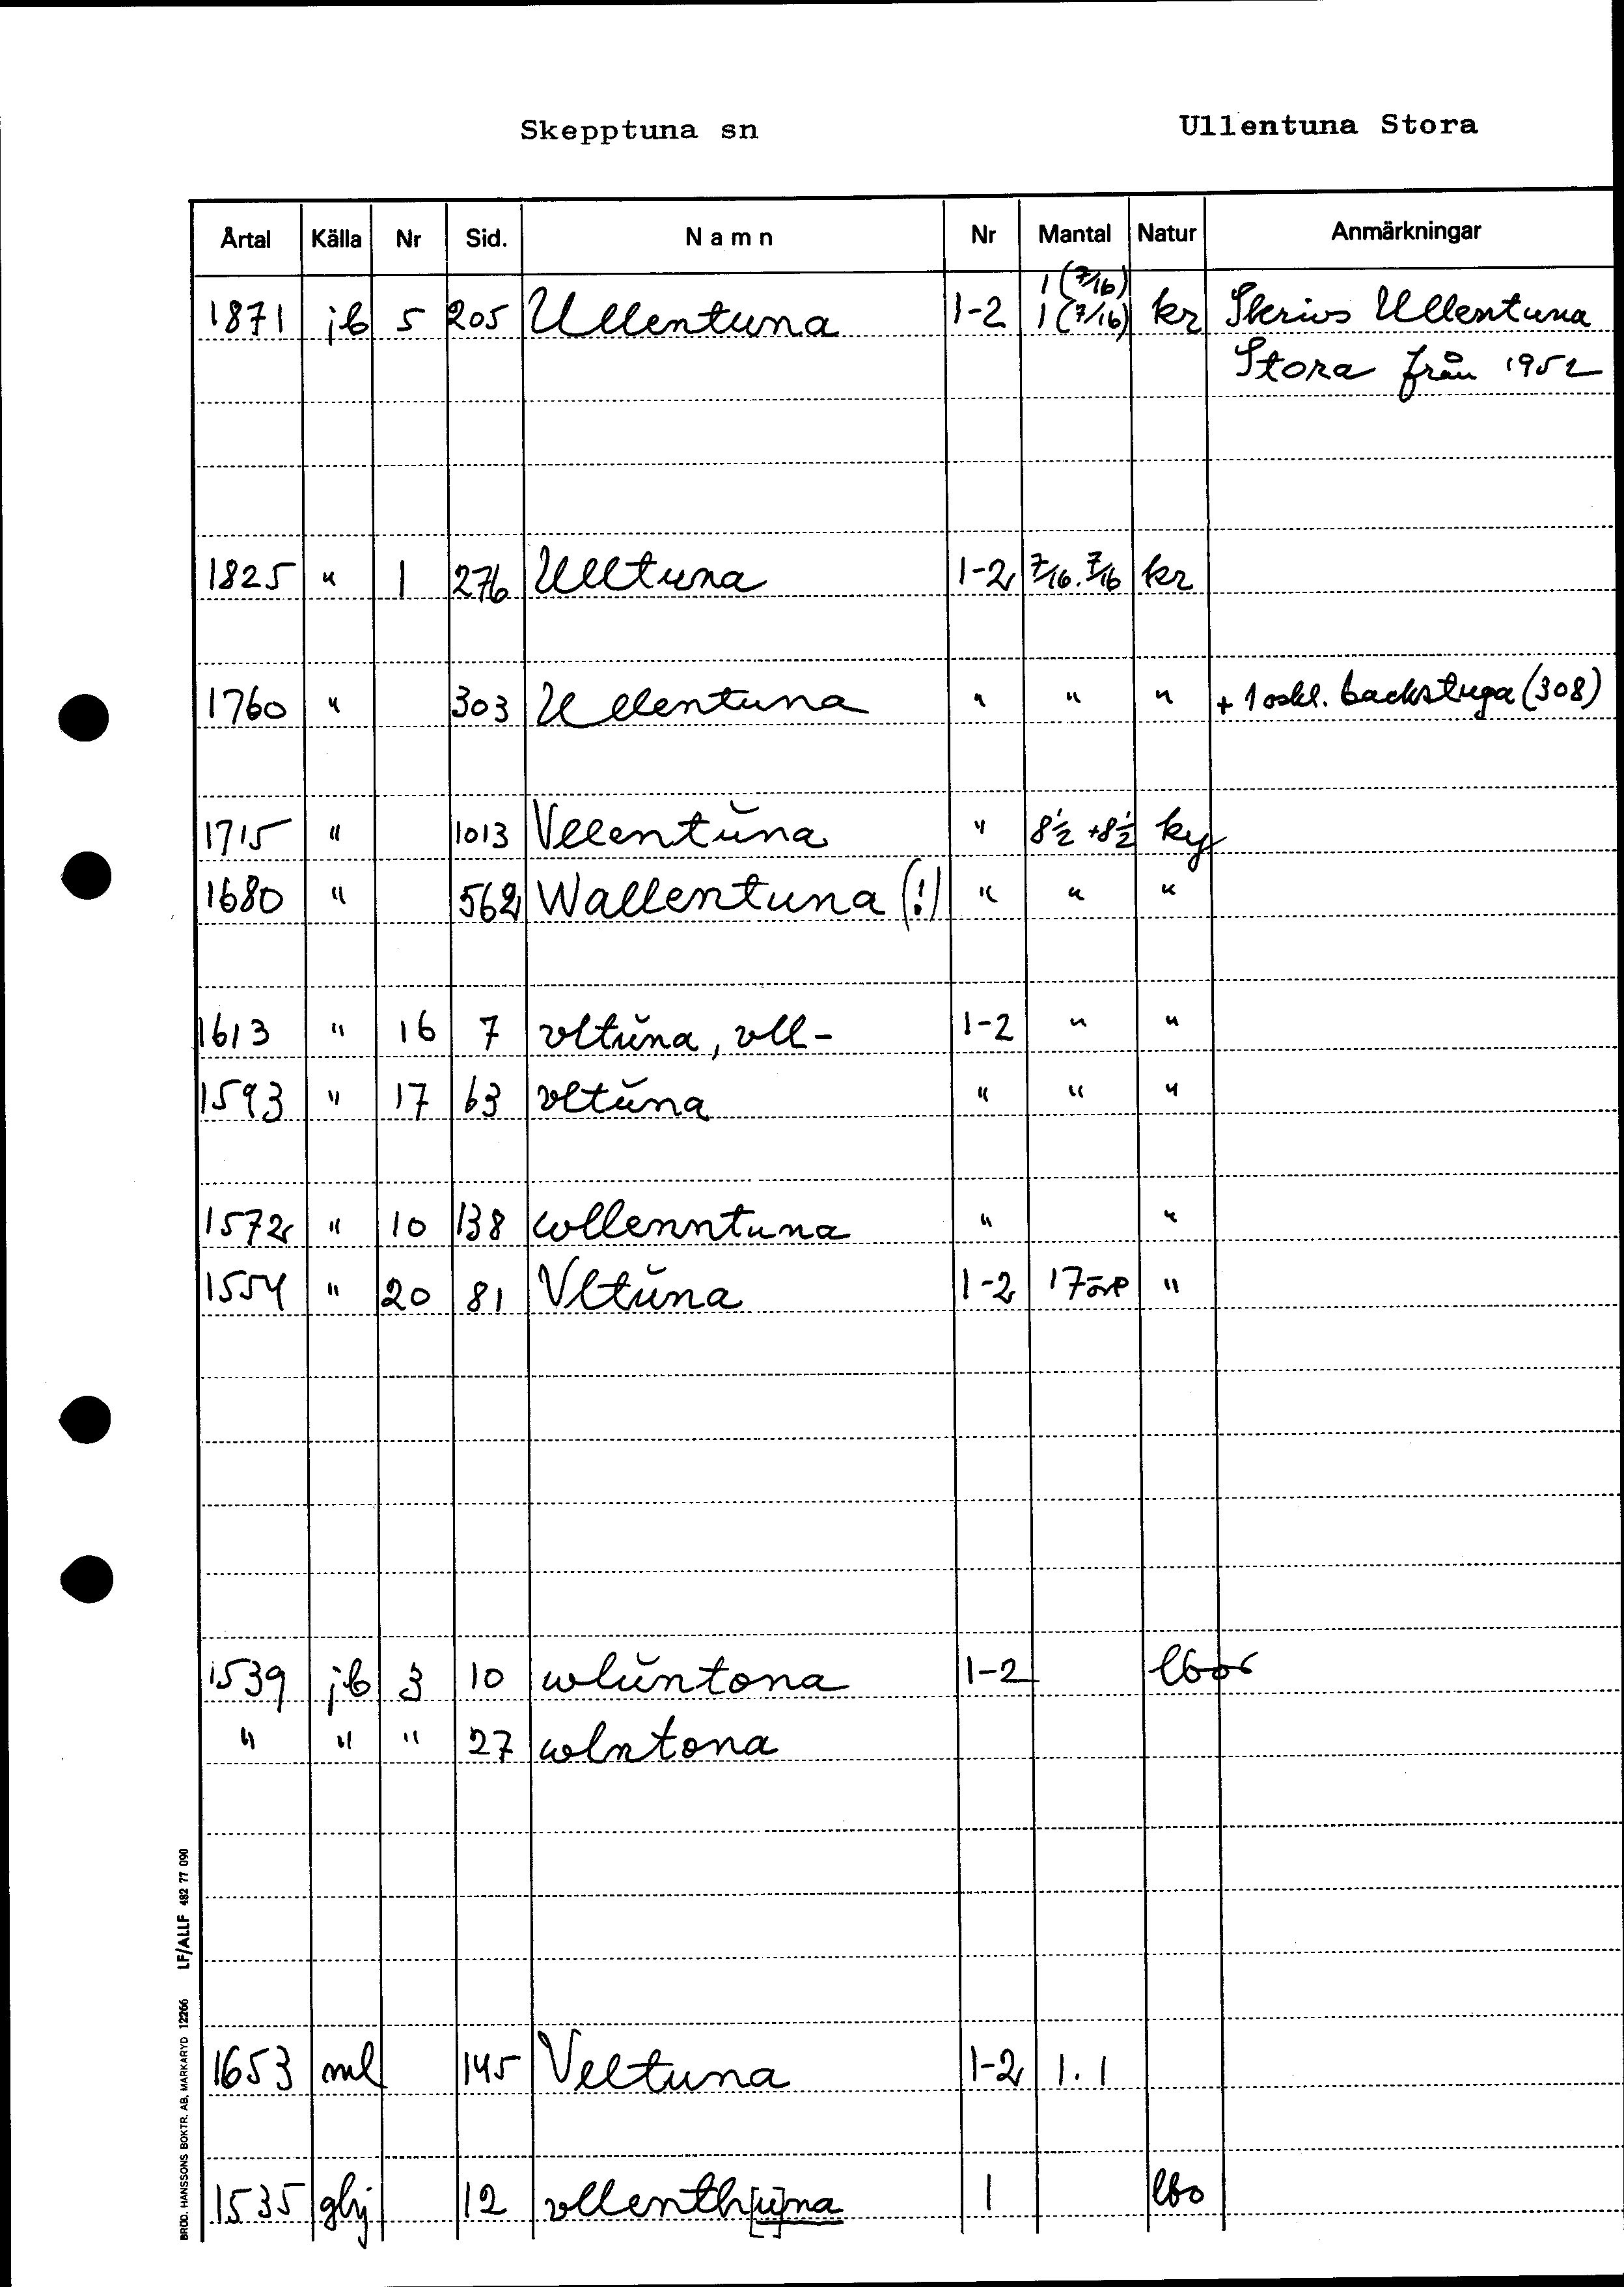 Skepptuna sn Ullentuna Stora
Årtal Källa Nr Sid. Namn Nr Mantal Natur Anmärkningar
1 (7/16)
1871 jb 5 205 Ullentuna 1-2 1 (7/16) kr Skrivs Ullentuna
Stora från 1952
1825 " 1 276 Ulltuna 1-2 7/16. 7/16 kr
1760 " 303 Ullentuna " " " + 1 oskl. backstuga (308)
1715 " 1013 Vllentŭna " 8½ + 8½ ky
1680 " 562 Wallentuna (!) " " "
1613 " 16 7 vltŭna, vll- 1-2 " "
1593 " 17 63 vltŭna " " "
1572 " 10 138 wllenntuna " "
1554 " 20 81 Vltŭna 1-2 17 öre "
1539 jb 3 10 wlŭntona 1-2
" " " 27 wlntona
1653 ml 145 Vltuna 1-2 1. 1
1535 ghj 12 vllenth[u]na 1 lbo
BRÖD. HANSSONS BOKTR. AB, MARKARYD 12266 LF/ALLF 482 77 090